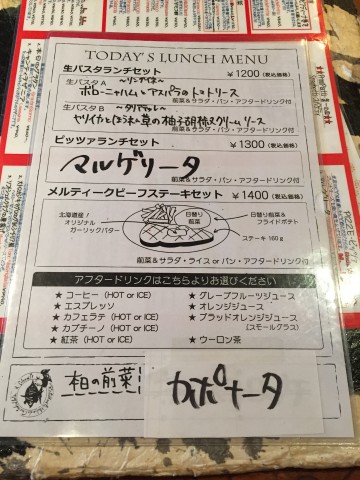 TODAY'S LUNCH MENU
生パスタランチセット ¥1200(税込価格)
生パスタA ～リングイネ～
ボローニャハムとアスパラのトマトソース
前菜&サラダ・パン・アフタードリンク付
生パスタB
ヤリイカとほうれん草の柚子胡椒クリームソース
前菜&サラダ・パン・アフタードリンク付
ピッツァランチセット ¥1300(税込価格)
マルゲリータ
前菜&サラダ・パン・アフタードリンク付
メルティークビーフステーキセット ¥1400(税込価格)
北海道産!
オリジナル
ガーリックバター
日替り
前菜
日替り前菜&
フライドポテト
ステーキ 160g
前菜&サラダ・ライス or パン・アフタードリンク付
アフタードリンクはこちらよりお選びください
★ コーヒー (HOT or ICE)
★ エスプレッソ
★ カフェラテ (HOT or ICE)
★ カプチーノ (HOT or ICE)
★ 紅茶 (HOT or ICE)
★ グレープフルーツジュース
★ オレンジジュース
★ ブラッドオレンジジュース
(スモールグラス)
★ ウーロン茶
本日の前菜!
カポナータ